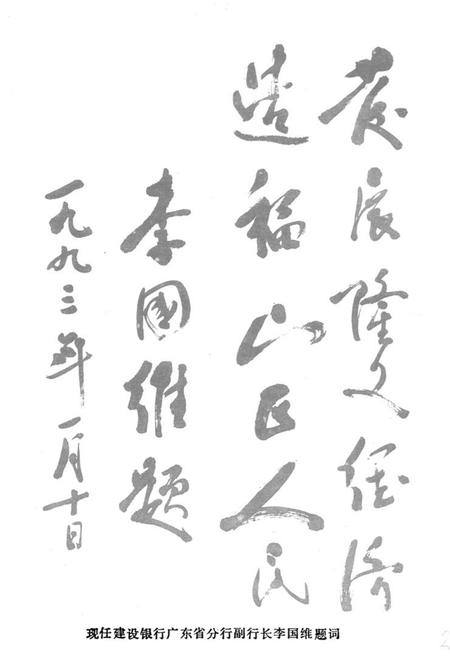 发展隆文经济
造福山区人民
李國維题
一九九三年一月十日
现任建设银行广东省分行副行长李国维题词